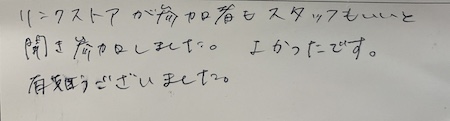 リンクストアが参加者もスタッフもいいと
聞き参加しました。よかったです。
有難うございました。